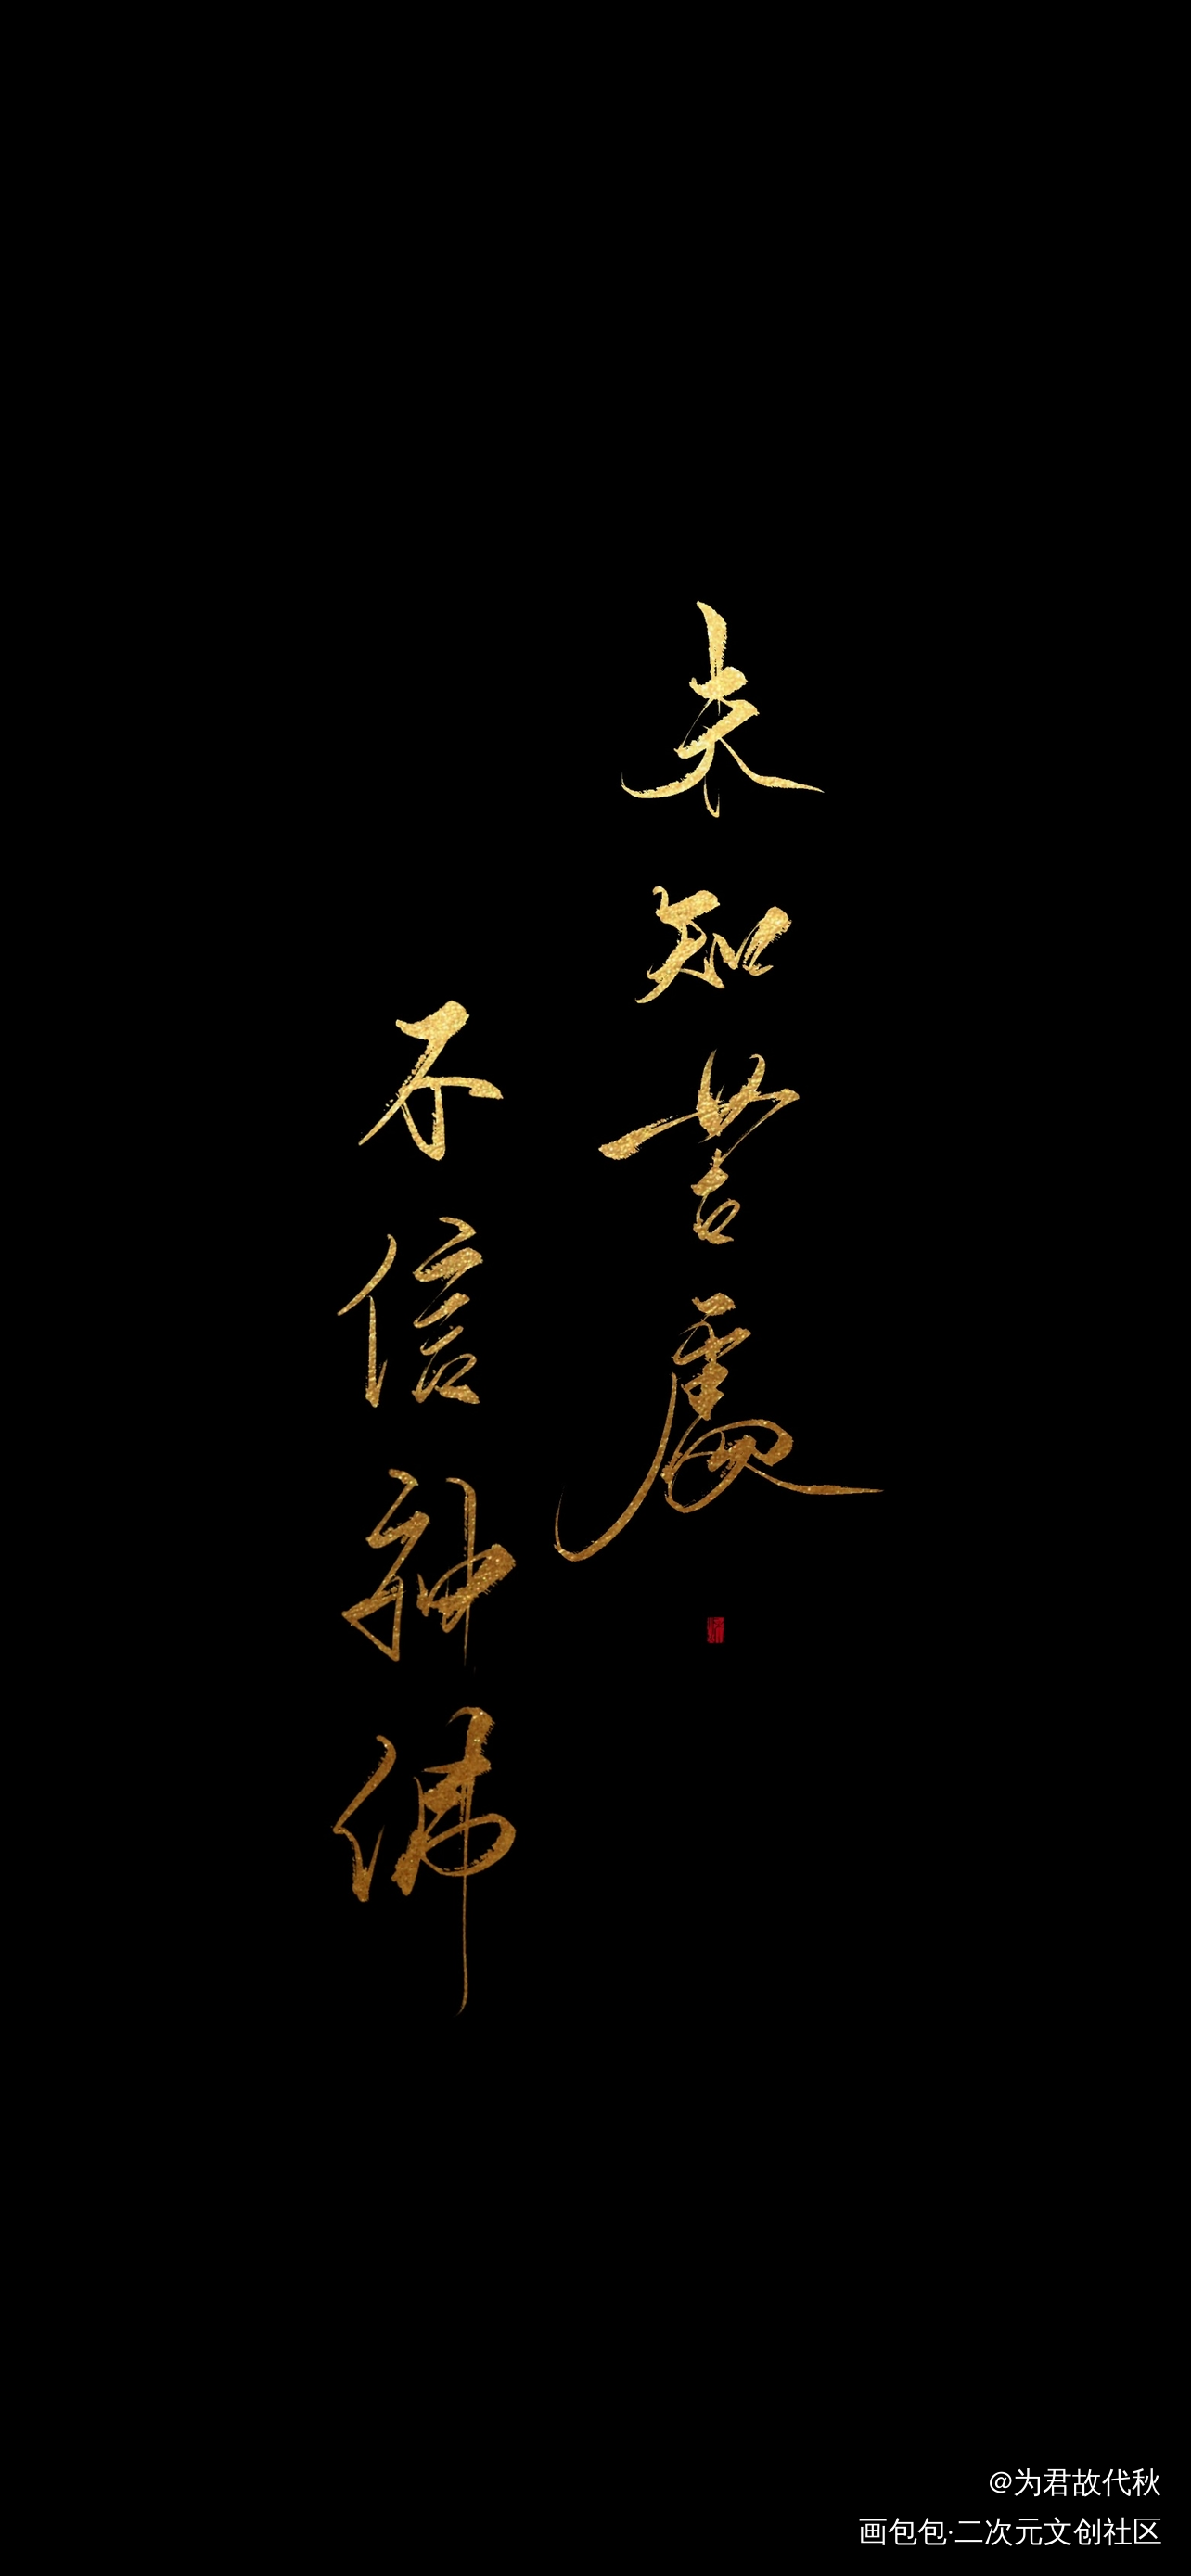 未知苦處
不信神佛
@为君故代秋
画包包·二次元文创社区